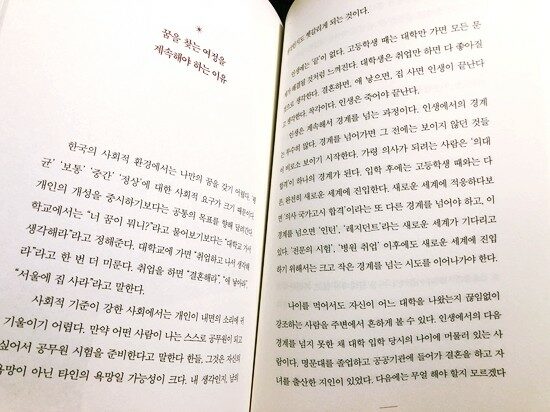 *
꿈을 찾는 여정을
계속해야 하는 이유
한국의 사회적 환경에서는 나만의 꿈을 갖기 어렵다. '평
균' '보통' '중간' '정상'에 대한 사회적 요구가 크기 때문이다.
개인의 개성을 중시하기보다는 공통의 목표를 향해 달린다.
학교에서는 "너 꿈이 뭐니?"라고 물어보기보다는 "대학교 가서
생각해라"라고 정해준다. 대학교에 가면 "취업하고 나서 생각해
라"라고 한 번 더 미룬다. 취업을 하면 "결혼해라", "애 낳아라",
"서울에 집 사라"라고 말한다.
사회적 기준이 강한 사회에서는 개인이 내면의 소리에 귀
기울이기 어렵다. 만약 어떤 사람이 나는 스스로 공무원이 되고
싶어서 공무원 시험을 준비한다고 말한다 한들, 그것은 자신의
욕망이 아닌 타인의 욕망일 가능성이 크다. 내 생각인지, 남의
헷갈리게 되는 것이다.
인생에는 '끝'이 없다. 고등학생 때는 대학만 가면 모든 문
제가 해결될 것처럼 느껴진다. 대학생은 취업만 하면 다 좋아질
것으로 생각한다. 결혼하면, 애 낳으면, 집 사면 인생이 끝난다
고 생각한다. 착각이다. 인생은 죽어야 끝난다.
인생은 계속해서 경계를 넘는 과정이다. 인생에서의 경계
는 무수히 많다. 경계를 넘어가면 그 전에는 보이지 않던 것들
이 비로소 보이기 시작한다. 가령 의사가 되려는 사람은 '의대
합격'이 하나의 경계가 된다. 입학 후에는 고등학생 때와는 다
른, 완전히 새로운 세계에 진입한다. 새로운 세계에 적응하다보
면 '의사 국가고시 합격'이라는 또 다른 경계를 넘어야 하고, 이
면 '인턴', '레지던트'라는 새로운 세계가 기다리고
있다. '전문의 시험', '병원 취업' 이후에도 새로운 세계에 진입
하기 위해서는 크고 작은 경계를 넘는 시도를 이어나가야 한다.
나이를 먹어서도 자신이 어느 대학을 나왔는지 끊임없이
강조하는 사람을 주변에서 흔하게 볼 수 있다. 인생에서의 다음
경계를 넘지 못한 채 대학 입학 당시의 나이에 머물러 있는 사
람이다. 명문대를 졸업하고 공공기관에 들어가 결혼을 하고 자
녀를 출산한 지인이 있었다. 다음에는 무얼 해야 할지 모르겠다